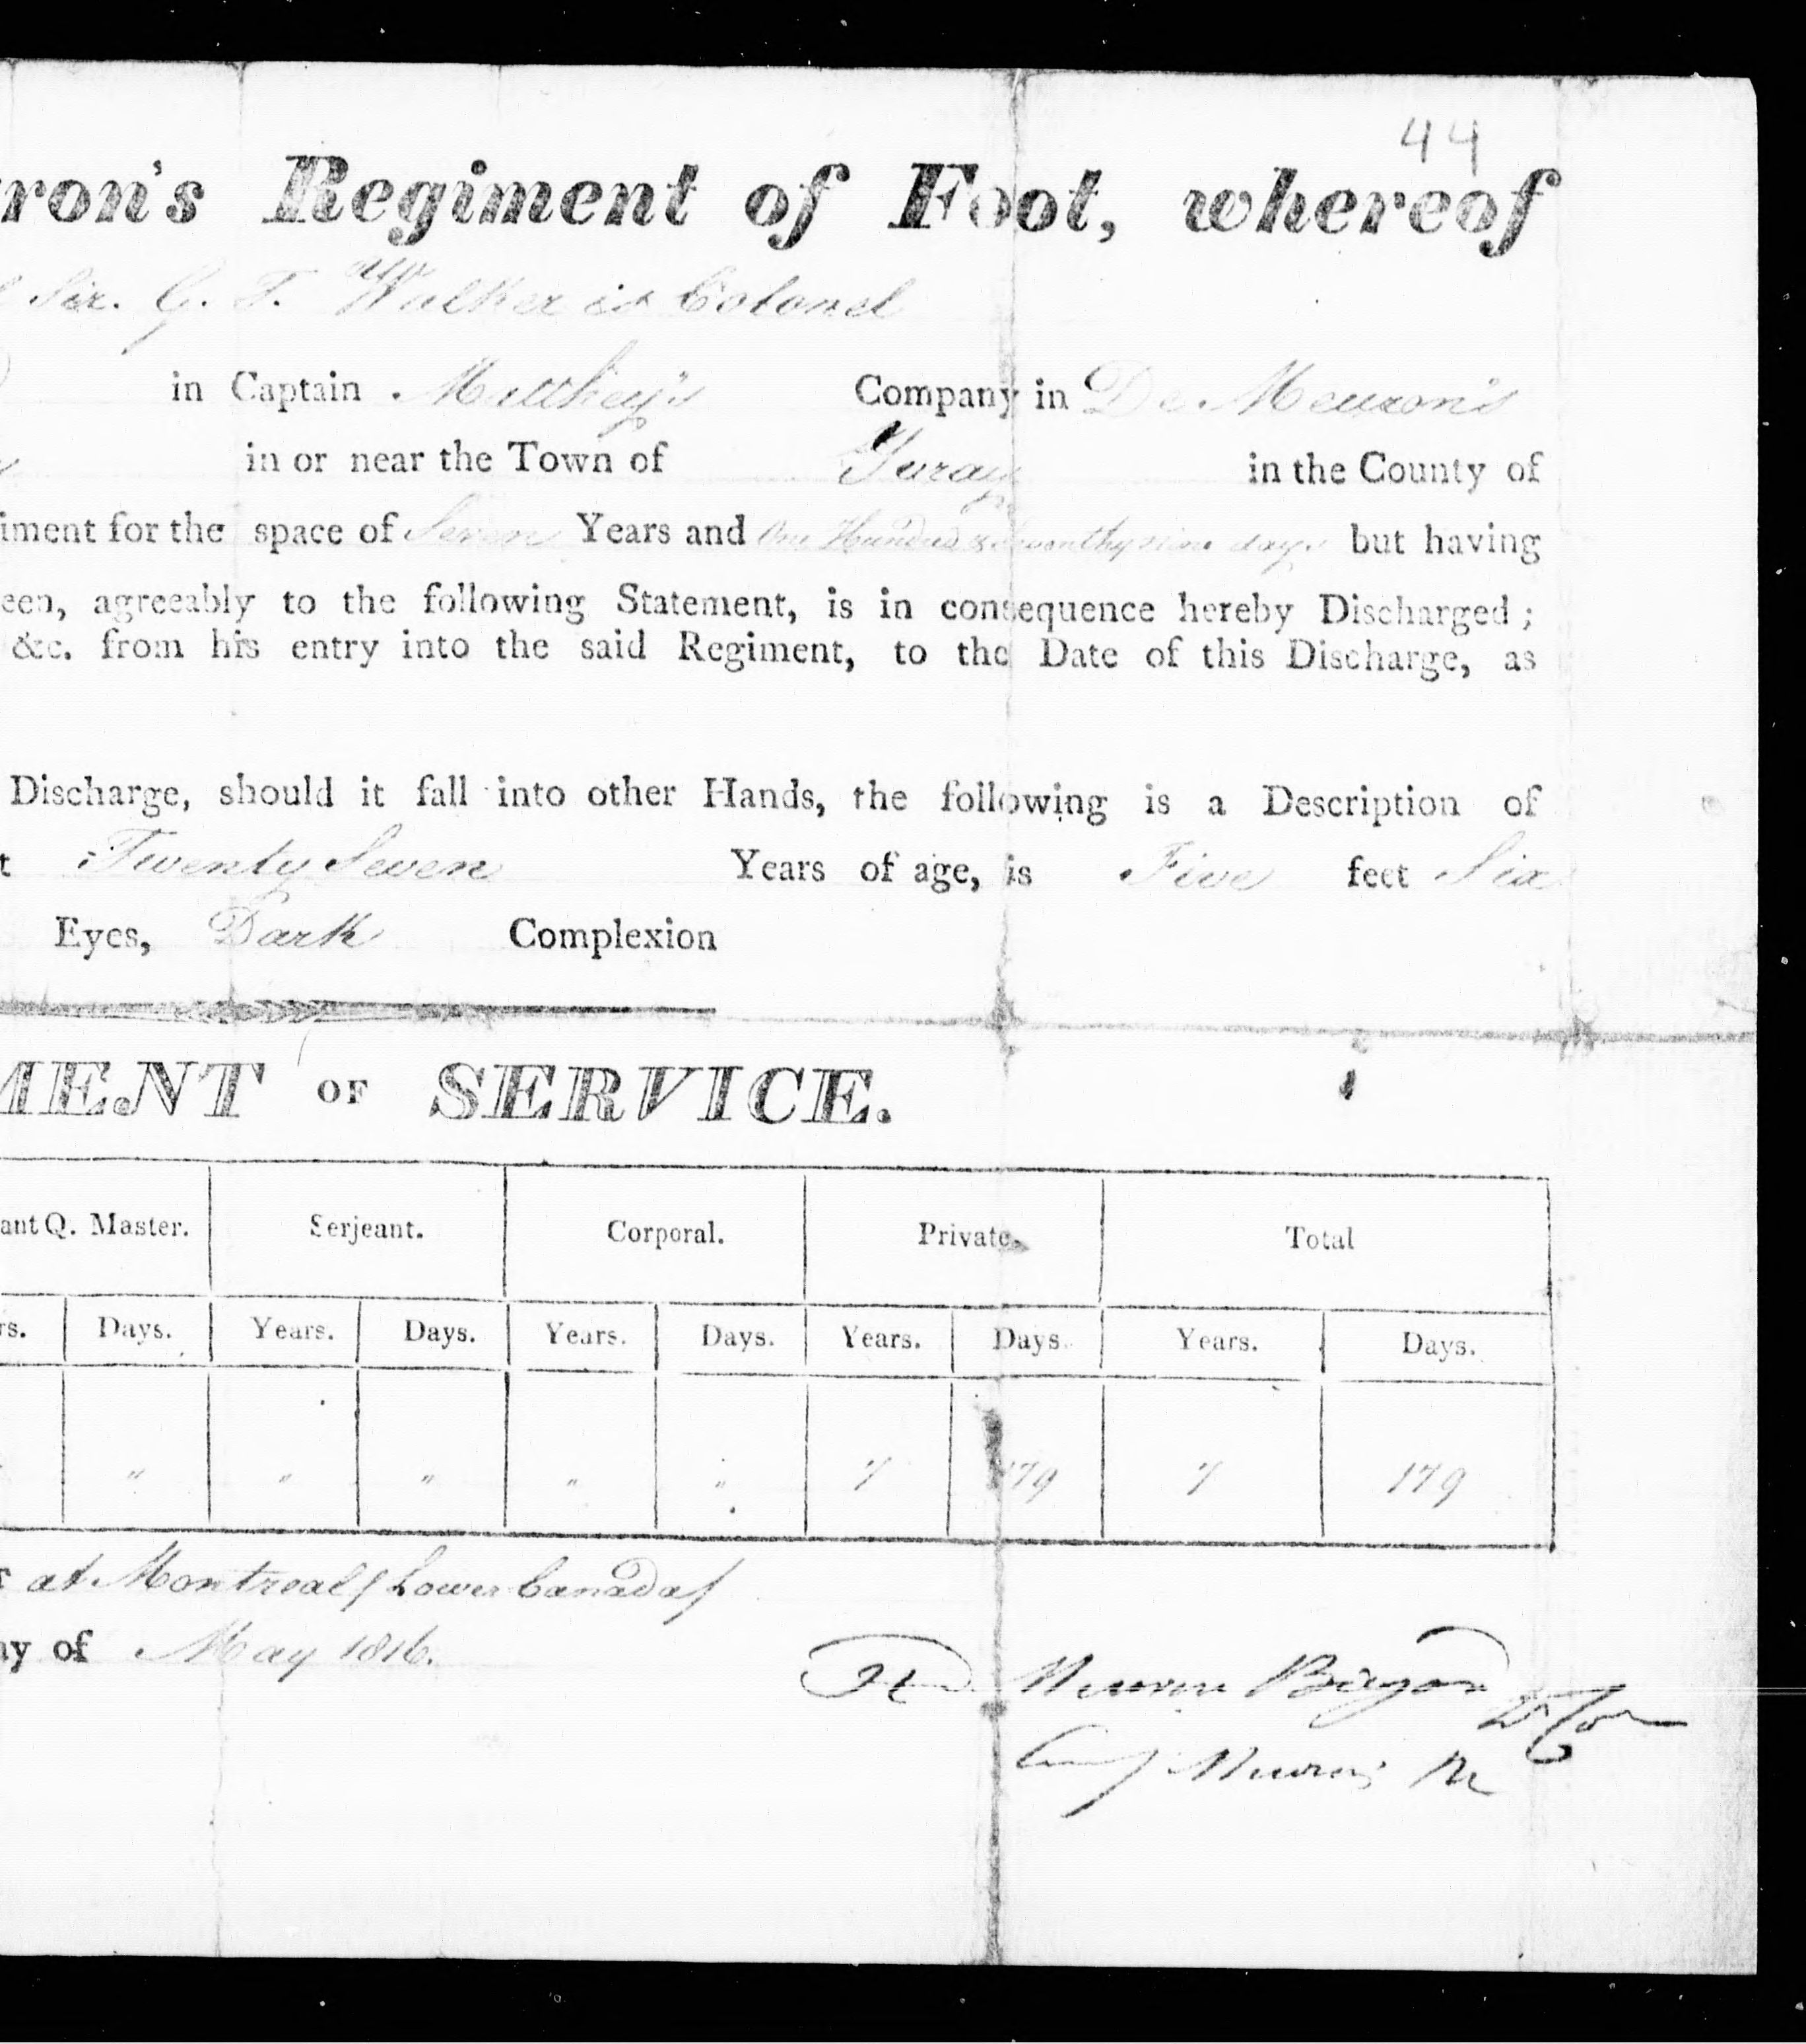 44
ron's Regiment of Foot, whereof
Sir. G. T. Walker is Colonel
in Captain Matthey's Company in De Meuron's
in or near the Town of in the County of
iment for the space of Seven Years and One Hundred & seventhy nine days but having
een, agreeably to the following Statement, is in consequence hereby Discharged;
&c. from his entry into the said Regiment, to the Date of this Discharge, as
Discharge, should it fall into other Hands, the following is a Description of
t Twenty Seven Years of age, is Five feet Six
Eyes, Dark Complexion
MENT OF SERVICE.
ant Q. Master. Serjeant. Corporal. Private. Total
rs. Days. Years. Days. Years. Days. Years. Days. Years. Days.
" " " " " 7 179 7 179
at Montreal / Lower Canada /
ay of May 1816.
Meuron